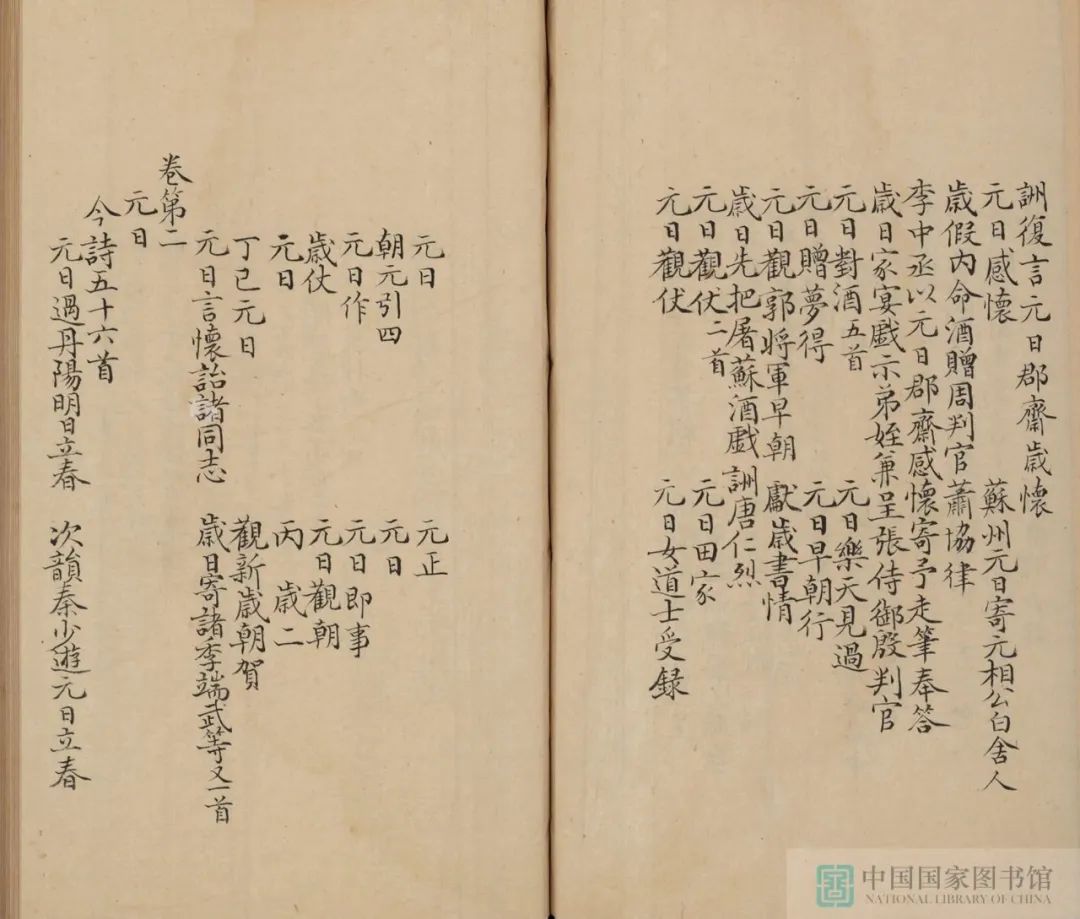 詶復言元日郡齋歲懷
元日感懷 蘇州元日寄元相公白舍人
歲假內命酒贈周判官蕭協律
李中丞以元日郡齋感懷寄予走筆奉答
歲日家宴戲示弟姪兼呈張侍御殷判官
元日對酒五首 元日樂天見過
元日贈夢得 元日早朝行
元日觀郭將軍早朝 獻歲書情
歲日先把屠蘇酒戲詶唐仁烈
元日觀伏二首 元日田家
元日觀伏 元日女道士受錄
元日 元正
朝元引四 元日
元日作 元日即事
歲仗 元日觀朝
元日 丙歲二
丁巳元日 觀新歲朝賀
元日言懷詒諸同志 歲日寄諸李端武等又一首
卷第二
元日
今詩五十六首
元日過丹陽明日立春 次韻秦少遊元日立春
中国国家图书馆
NATIONAL LIBRARY OF CHINA